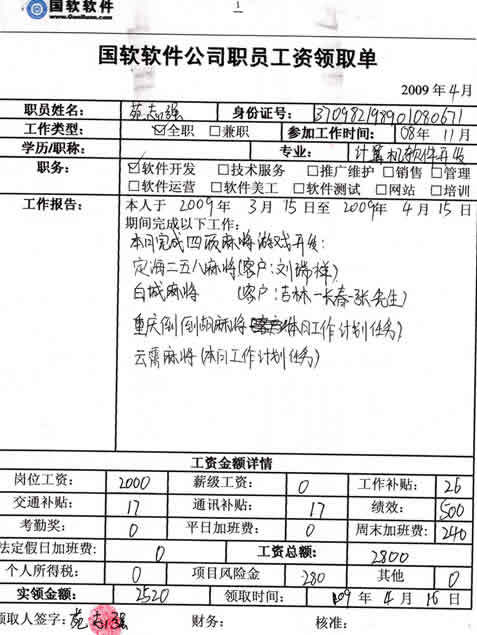 国软软件
www.GuoRuan.com
1
国软软件公司职员工资领取单
2009年4月
职员姓名: 苑志强 身份证号: 370982198901080671
工作类型: ☑全职 □兼职 参加工作时间: 08年11月
学历/职称: 专业: 计算机软件开发
职务: ☑软件开发 □技术服务 □推广维护 □销售 □管理
□软件运营 □软件美工 □软件测试 □网站 □培训
工作报告: 本人于2009年3月15日至2009年4月15日
期间完成以下工作:
本月完成四项麻将游戏开发:
定海二五八麻将(客户:刘瑞祥)
白城麻将 (客户:吉林-长春-张先生)
重庆倒倒胡麻将 本月工作计划任务)
云霄麻将(本月工作计划任务)
工资金额详情
岗位工资: 2000 薪级工资: 0 工作补贴: 26
交通补贴: 17 通讯补贴: 17 绩效: 500
考勤奖: 0 平日加班费: 0 周末加班费: 240
法定假日加班费: 0 工资总额: 2800
个人所得税: 0 项目风险金 280 其他 0
实领金额: 2520 领取时间: 09年4月16日
领取人签字: 苑志强 财务: 核准: